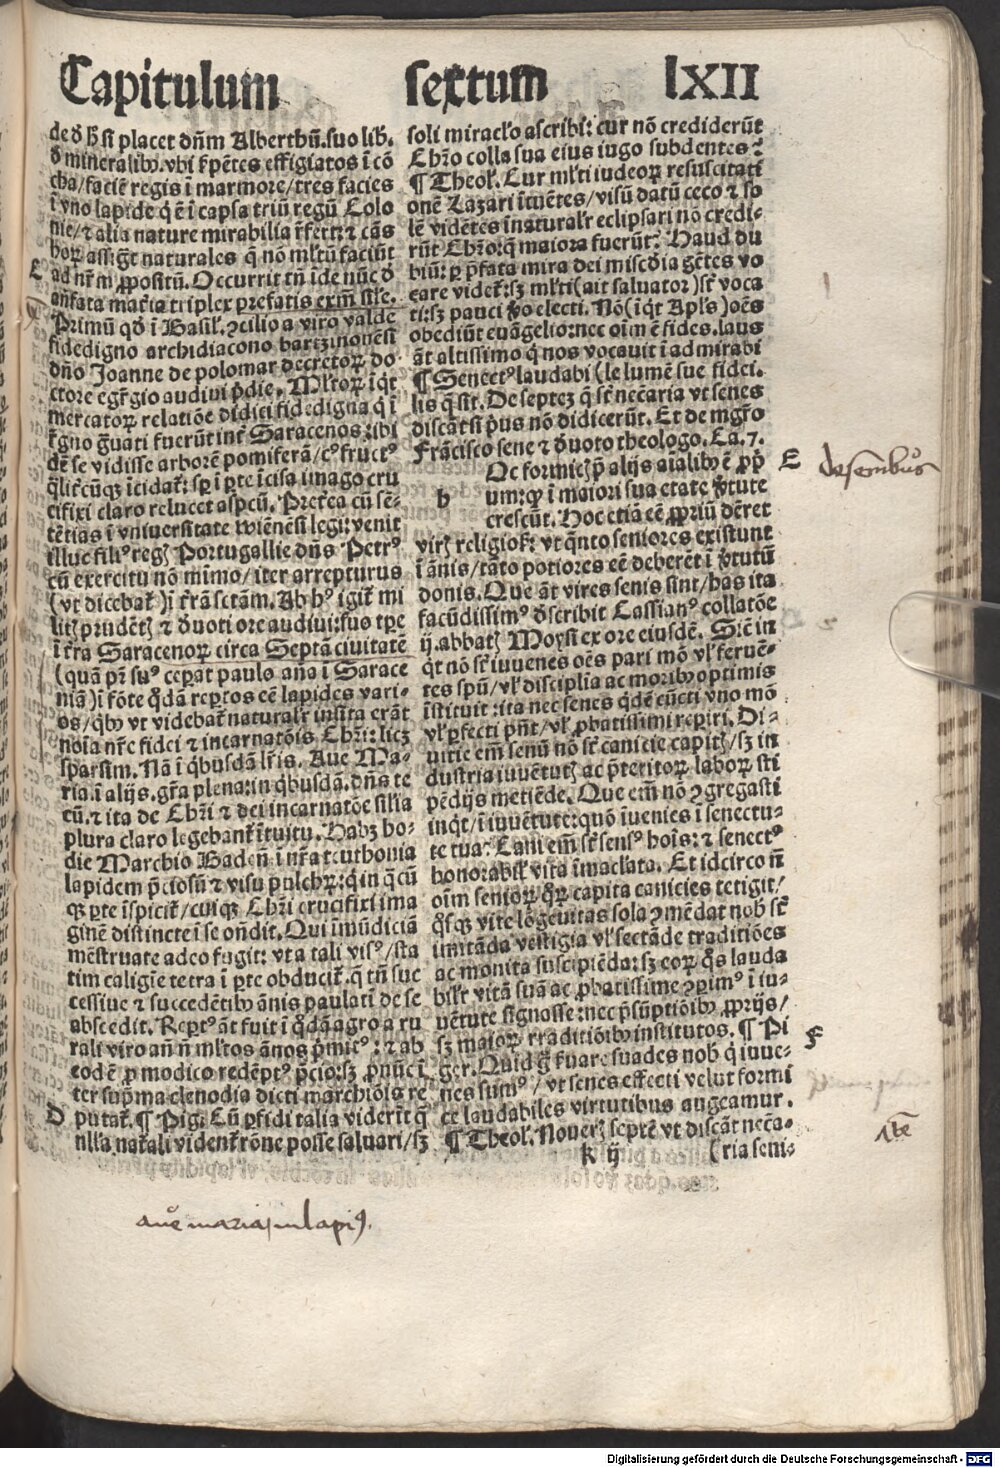 Capitulum sextum lXII
de ꝺ hͦ si placet dn̄m Alberthū. suo lib̕.
ꝺ mineralibꝰ. vbi r̄pētes effigiatos ī cō
cha/faciē regis ī marmore/tres facies
ī vno lapide q̄ ē ī capsa triū regū Colo
nie/⁊ alia nature mirabilia r̄fert: ⁊ cās
hoꝝ assigt̄ naturales q̄ nō ml̕tū faciūt
C
ad nr̄m ꝓpositū. Occurrit tn̄ īde nūc ꝺ
an̄fata mat̕ia triplex prefatis exm̄ sil̕e.
Primū qd̕ ī Basil̕. ꝯcilio a viro valde
fidedigno archidiacono barizinonēsi
dn̄o Joanne de polomar decretoꝝ do
ctore egr̄gio audiui p̄die. Ml̕toꝝ īq̇t
mercatoꝝ relatiōe didici fidedigna q̇ ī
r̄gno g̕uati fuerūt int̕ Saracenos: ibi
dē se vidisse arborē pomiferā/cꝰ fructꝰ
q̄lit̕cūqꝫ īcidat̕: sꝑ ī ꝑte īcisa imago cru
cifixi claro relucet aspc̄u. Pret̕ea cū sē-
tētias ī vniuersitate wiēnēsi legi: venit
illuc filiꝰ regꝭ Portugallie dn̄s Petrꝰ
cū exercitu nō mīmo/iter arrepturus
(vt dicebat̕) ī t̕rā sctām. Ab hꝰ igit̕ mi
litꝭ prudētꝭ ⁊ ꝺuoti ore audiui: suo tꝑe
ī t̕ra Saracenoꝝ circa Septā ciuitatē
(quā pr̄ suꝰ ceperat paulo an̄a ī Sarace
niā) ī fōte q̇dā reꝑtos eē lapides vari-
os/q̇bꝰ vt videbat̕ natural̕r īsita erāt
noīa nr̄e fidei ⁊ incarnatōis Chr̄i: licꝫ
sparsim. Nā ī q̇busdā lr̄is. Aue Ma-
ria. ī alijs. gr̄a plena: in q̇busdā. dn̄s te
cū. ⁊ ita de Chr̄i ⁊ dei incarnatōe silia
plura claro legebant̕ ītuitu. Habꝫ ho-
die Marchio Baden̄ ī nr̄a teuthonia
lapidem p̄ciosū ⁊ visu pulchꝝ: q̇ in q̄cū
qꝫ ꝑte īspicit̕/cuiqꝫ Chr̄i crucifixi ima
ginē distincte ī se on̄dit. Qui imūdiciā
mēstruate adeo fugit: vt a tali visꝰ/sta
tim caligīe tetra ī ꝑte obducit̕. q̄ tn̄ suc
cessiue ⁊ succedētibꝰ ānis paulatī de se
abscedit. Reꝑtꝰ āt fuit ī q̇dā agro a ru
rali viro an̄ n̄ ml̕tos ānos p̄mitꝰ: ⁊ ab
eodē ꝓ modico redēptꝰ p̄cio: sꝫ ꝓ nūc ī
ter sup̄ma clenodia dicti marchiōis re
D
putat̕. ¶ Pig̕. Cū ꝑfidi talia viderīt q̄
nlla nat̕ali vident̕ rōne posse saluari/sꝫ
soli miracl̕o ascribi: cur nō crediderūt
Chr̄o colla sua eius iugo subdentes?
¶ Theol̕. Cur ml̕ti iudeoꝝ resuscitati
onē Lazari ītuētes/visū datū ceco ⁊ so
lē vidētes īnatural̕r eclipsari nō credi-
rūt Chr̄o: q̄ maiora fuerūt? Haud du
biū: ꝑ p̄fata mira dei misc̄dia gētes vo
care videt̕: sꝫ ml̕ti (ait saluator) st̄ voca
ti: sꝫ pauci ꝟo electi. Nō (īq̇t Apl̕s) oēs
obediūt euāgelio: nec oīm ē fides. laus
āt altissimo q̇ nos vocauit ī admirabi
¶ Senectꝰ laudabi (le lumē sue fidei.
lis q̄ sit. De septeꝫ q̄ st̄ nec̄aria vt senes
discāt si p̄us nō didicerūt. Et de mgr̄o
Frācisco sene ⁊ ꝺuoto theologo. Ca. 7.
E
Oc formicꝭ p̄ alijs aīalibꝰ ē ꝓp̄
h
um: ꝙ ī maiori sua etate ꝟtute
crescūt. Hoc etiā eē ꝓpriū dēret
virꝭ religioẜ: vt q̄nto seniores existunt
ī ānis/tāto potiores eē deberēt ī ꝟtutū
donis. Que āt vires senis sint/has ita
facūdissimꝰ ꝺscribit Cassianꝰ collatōe
ij. abbatꝭ Moysi ex ore eiusdē. Sic̄ in
q̇t nō st̄ iuuenes oēs pari mō vl̕ feruē-
tes spū/vl̕ disciplīa ac moribꝰ optimis
īstituit: ita nec senes q̇dē cūcti vno mō
vl̕ ꝑfecti pn̄t/vl̕ ꝓbatissimi reꝑiri. Di-
uitie em̄ senū nō st̄ canicie capitꝭ/sꝫ in
dustria iuuētutꝭ ac p̄teritoꝝ laboꝝ sti
pēdijs metiēde. Que em̄ nō ꝯgregasti
inq̇t/ī iuuētute: quō īuenies ī senectu-
te tua? Cani em̄ st̄ sensꝰ hoīs: ⁊ senectꝰ
honorabil̕ vita īmacl̕ata. Et idcirco n̄
oīm senioꝝ q̇ꝝ capita canicies tetigit/
q̇sqꝫ vite lōgeuitas sola ꝯmēdat nob̕ st̄
imitāda vestigia vl̕ sectāde traditiōes
ac monita suscipiēda: sꝫ eoꝝ q̇s lauda
bilit̕ vitā suā ac ꝓbatissime ꝯperimꝰ ī iu-
uētute signosse: nec p̄sūptiōibꝰ ꝓprijs/
sꝫ maioꝝ traditiōibꝰ institutos. ¶ Pi
F
ger. Quid g̊ ẜuare suades nob̕ q̇ iuue-
nes sumꝰ/vt senes effecti velut formi
ce laudabiles virtutibus augeamur.
¶ Theol̕. Nouerꝭ septē vt discāt nec̄a-
k ij (ria seni-
de senibus
aue maria in lapiꝰ.